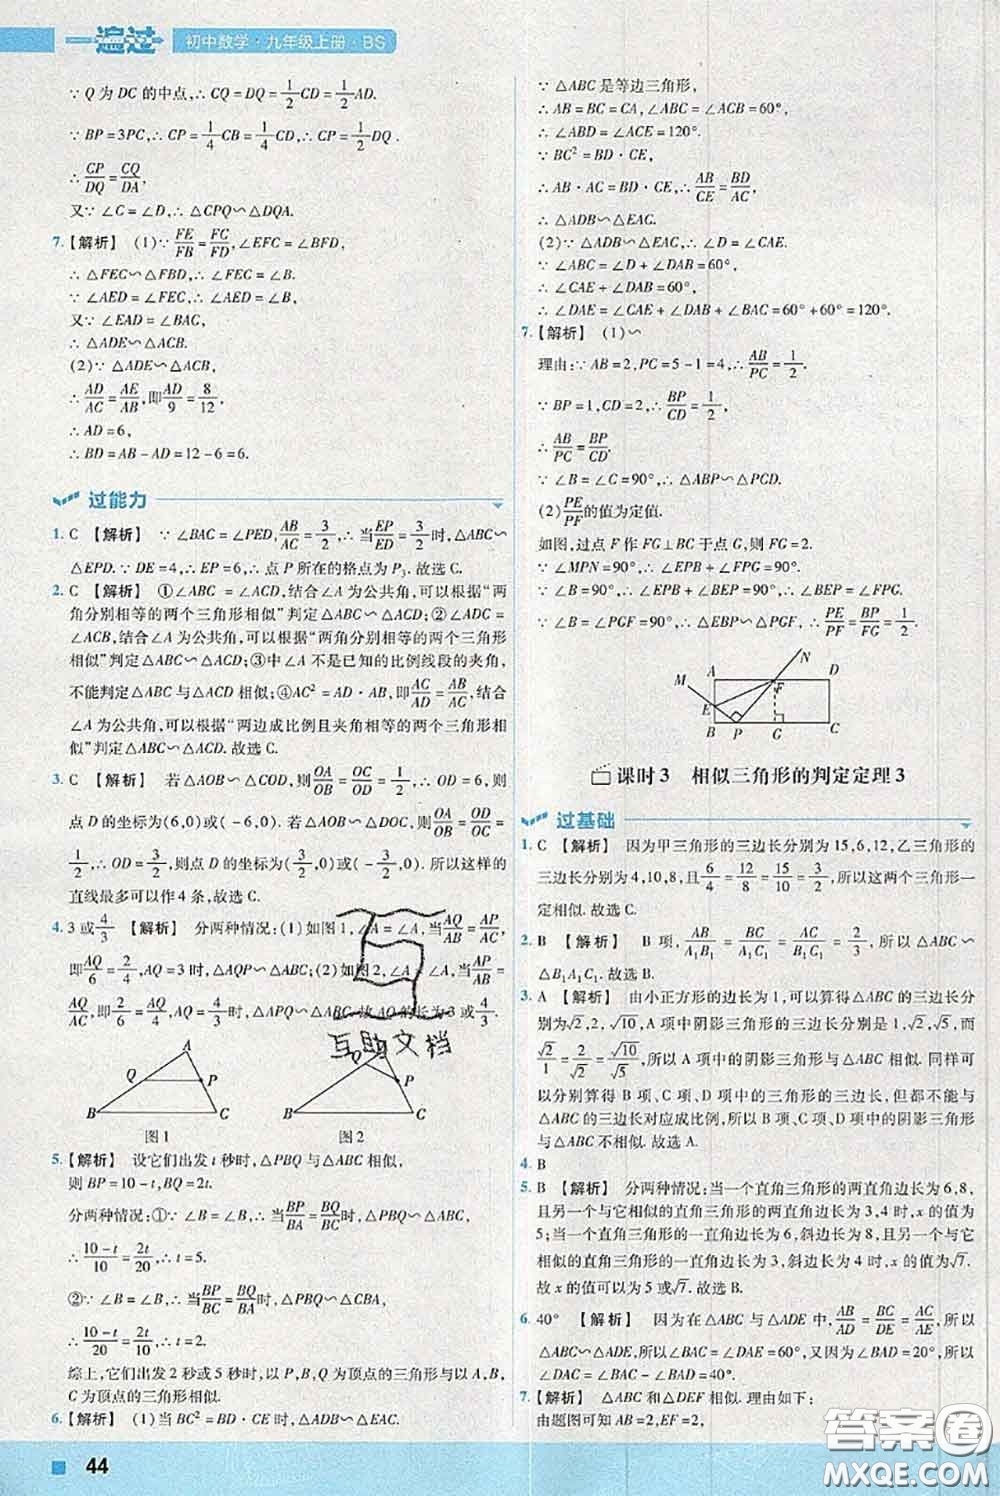 一遍过 初中数学·九年级上册·BS
∵ Q 为 DC 的中点,∴ CQ = DQ = 1/2 CD = 1/2 AD.
∵ BP = 3PC,∴ CP = 1/4 CB = 1/4 CD,∴ CP = 1/2 DQ.
∴ CP/DQ = CQ/DA,
又∵ ∠C = ∠D,∴ △CPQ∽△DQA.
7.【解析】 (1)∵ FE/FB = FC/FD,∠EFC = ∠BFD,
∴ △FEC∽△FBD,∴ ∠FEC = ∠B.
∵ ∠AED = ∠FEC,∴ ∠AED = ∠B,
又∵ ∠EAD = ∠BAC,
∴ △ADE∽△ACB.
(2)∵ △ADE∽△ACB,
∴ AD/AC = AE/AB,即 AD/9 = 8/12,
∴ AD = 6,
∴ BD = AB - AD = 12 - 6 = 6.
过能力
1. C 【解析】 ∵ ∠BAC = ∠PED, AB/AC = 3/2,∴ 当 EP/ED = 3/2 时,△ABC∽
△EPD. ∵ DE = 4,∴ EP = 6,∴ 点 P 所在的格点为 P₃. 故选 C.
2. C 【解析】 ①∠ABC = ∠ACD,结合∠A 为公共角,可以根据“两
角分别相等的两个三角形相似”判定△ABC∽△ACD;②∠ADC =
∠ACB,结合∠A 为公共角,可以根据“两角分别相等的两个三角形
相似”判定△ABC∽△ACD;③中∠A 不是已知的比例线段的夹角,
不能判定△ABC 与△ACD 相似;④AC² = AD · AB,即 AC/AD = AB/AC,结合
∠A 为公共角,可以根据“两边成比例且夹角相等的两个三角形相
似”判定△ABC∽△ACD. 故选 C.
3. C 【解析】 若△AOB∽△COD,则 OA/OB = OC/OD = 2/4 = 1/2,∴ OD = 6,则
点 D 的坐标为(6,0)或( - 6,0). 若△AOB∽△DOC,则 OA/OB = OD/OC =
1/2,∴ OD = 3/2,则点 D 的坐标为(3/2,0)或( - 3/2,0). 所以这样的
直线最多可以作 4 条,故选 C.
4. 3 或 4/3 【解析】 分两种情况:(1)如图 1,∠A = ∠A,当 AQ/AB = AP/AC,
即 AQ/6 = 2/4,AQ = 3 时,△AQP∽△ABC;(2)如图 2,∠A = ∠A,当 AP/AB =
AQ/AC,即 2/6 = AQ/4,AQ = 4/3 时,△APQ∽△ABC. 故 AQ 的长为 3 或 4/3.
互助文档
A Q P B C
A Q P B C
图 1 图 2
5.【解析】 设它们出发 t 秒时,△PBQ 与△ABC 相似,
则 BP = 10 - t,BQ = 2t.
分两种情况:①∵ ∠B = ∠B,∴ 当 BP/BA = BQ/BC 时,△PBQ∽△ABC,
∴ (10 - t)/10 = 2t/20,∴ t = 5.
②∵ ∠B = ∠B,∴ 当 BP/BC = BQ/BA 时,△PBQ∽△CBA,
∴ (10 - t)/20 = 2t/10,∴ t = 2.
综上,它们出发 2 秒或 5 秒时,以 P,B,Q 为顶点的三角形与以 A,B,
C 为顶点的三角形相似.
6.【解析】 (1)当 BC² = BD · CE 时,△DAB∽△AEC.
∵ △ABC 是等边三角形,
∴ AB = BC = CA,∠ABC = ∠ACB = 60°,
∴ ∠ABD = ∠ACE = 120°.
∵ BC² = BD · CE,
∴ AB · AC = BD · CE,∴ AB/CE = BD/AC,
∴ △DAB∽△AEC.
(2)∵ △DAB∽△AEC,∴ ∠D = ∠CAE.
∵ ∠ABC = ∠D + ∠DAB = 60°,
∴ ∠CAE + ∠DAB = 60°,
∴ ∠DAE = ∠CAE + ∠DAB + ∠BAC = 60° + 60° = 120°.
7.【解析】 (1)∽
理由:∵ AB = 2,PC = 5 - 1 = 4,∴ AB/PC = 1/2.
∵ BP = 1,CD = 2,∴ BP/CD = 1/2,
∴ AB/PC = BP/CD.
∵ ∠B = ∠C = 90°,∴ △ABP∽△PCD.
(2) PE/PF 的值为定值.
如图,过点 F 作 FG⊥BC 于点 G,则 FG = 2.
∵ ∠MPN = 90°,∴ ∠EPB + ∠FPG = 90°.
∵ ∠BEP + ∠EPB = 90°,∴ ∠BEP = ∠FPG.
∵ ∠B = ∠PGF = 90°,∴ △EBP∽△PGF,∴ PE/PF = BP/FG = 1/2.
M A F N D E B P G C
课时 3 相似三角形的判定定理 3
过基础
1. C 【解析】 因为甲三角形的三边长分别为 15,6,12,乙三角形的
三边长分别为 4,10,8,且 6/4 = 12/8 = 15/10 = 3/2,所以这两个三角形一
定相似. 故选 C.
2. B 【解析】 B 项, AB/A₁B₁ = BC/A₁C₁ = AC/B₁C₁ = 2/3,所以△ABC∽
△B₁A₁C₁. 故选 B.
3. A 【解析】 由小正方形的边长为 1,可以算得△ABC 的三边长分
别为√2,2,√10,A 项中阴影三角形的三边长分别为 1,√2,√5,而
√2/1 = 2/√2 = √10/√5,所以 A 项中的阴影三角形与△ABC 相似. 同样可
以分别算得 B 项、C 项、D 项中的三角形的三边长,但都不能与
△ABC 的三边长对应成比例,所以 B 项、C 项、D 项中的阴影三角形
与△ABC 不相似. 故选 A.
4. B
5. B 【解析】 分两种情况:当一个直角三角形的两直角边长为 6,8,
且另一个与它相似的直角三角形的两直角边长为 3,4 时,x 的值为
5;当一个直角三角形的一直角边长为 6,斜边长为 8,另一个与它
相似的直角三角形的一直角边长为 3,斜边长为 4 时,x 的值为√7.
故 x 的值可以为 5 或√7. 故选 B.
6. 40° 【解析】 因为在△ABC 与△ADE 中, AB/AD = BC/DE = AC/AE,所以
△ABC∽△ADE,所以∠BAC = ∠DAE,所以∠BAC - ∠DAC =
∠DAE - ∠DAC,所以∠CAE = ∠BAD = 40°.
7.【解析】 △ABC 和△DEF 相似. 理由如下:
由题图可知 AB = 2,EF = 2,
44
答案圈
MXQE.COM